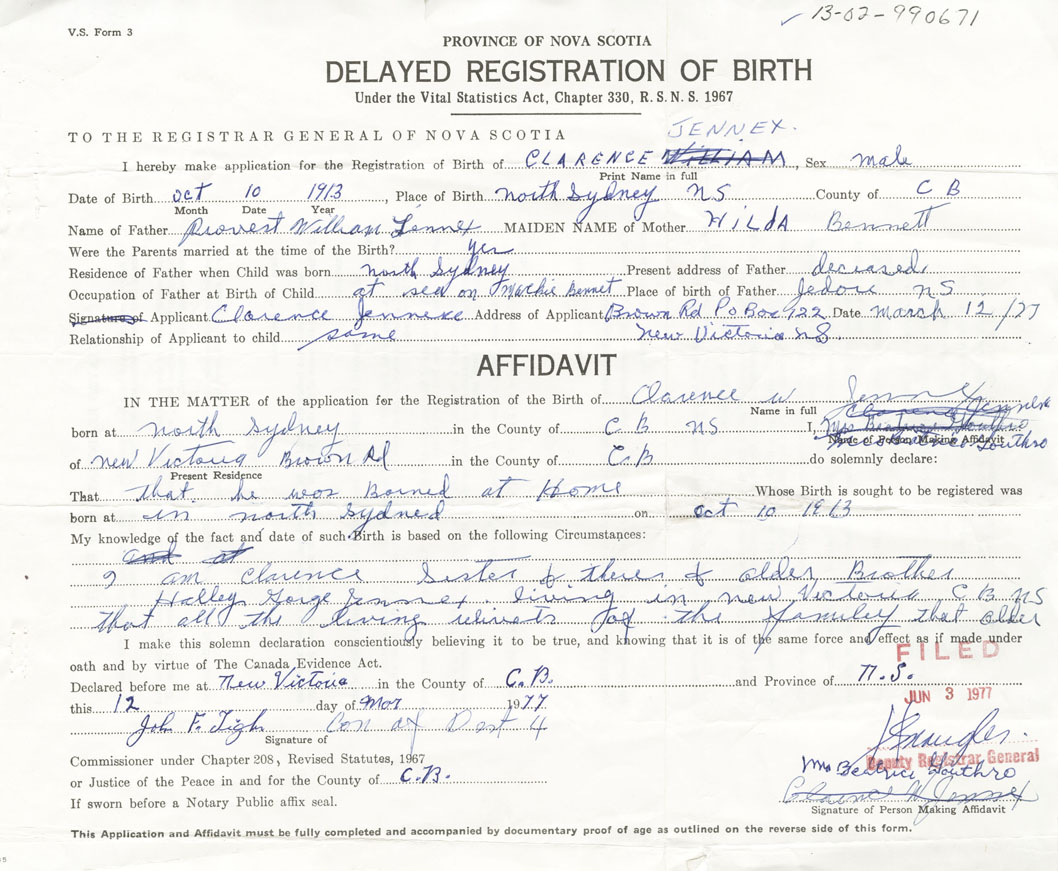 13-02-990671
V.S. Form 3
PROVINCE OF NOVA SCOTIA
DELAYED REGISTRATION OF BIRTH
Under the Vital Statistics Act, Chapter 330, R.S.N.S. 1967
JENNEX.
TO THE REGISTRAR GENERAL OF NOVA SCOTIA
I hereby make application for the Registration of Birth of CLARENCE WILLIAM, Sex male
Print Name in full
Date of Birth Oct 10 1913, Place of Birth North Sydney NS County of C B
Month Date Year
Name of Father Provest William Jennex MAIDEN NAME of Mother HILDA Bennett
Were the Parents married at the time of the Birth? yes
Residence of Father when Child was born north Sydney Present address of Father deceased
Occupation of Father at Birth of Child at sea on Bennet Place of birth of Father Jedore NS
Signature of Applicant Clarence Jennexe Address of Applicant Brown Rd P O Box 922 Date March 12/77
Relationship of Applicant to child same New Victoria NS
AFFIDAVIT
IN THE MATTER of the application for the Registration of the Birth of Clarence W Jennex
Name in full
born at North Sydney in the County of C B NS I, Mrs Beatrice Southro
Name of Person Making Affidavit
of New Victoria Brown Rd in the County of C.B do solemnly declare:
Present Residence
That that he was Borned at Home Whose Birth is sought to be registered was
born at in north Sydned on Oct 10 1913
My knowledge of the fact and date of such Birth is based on the following Circumstances:
and at
I am Clarence Sister & theres & older Brother
Halley Gorge Jennex living in new Victoria C B NS
that all the living relivets for the familey that older
I make this solemn declaration conscientiously believing it to be true, and knowing that it is of the same force and effect as if made under
oath and by virtue of The Canada Evidence Act.
FILED
Declared before me at New Victoria in the County of C.B. and Province of N.S.
this 12 day of Mar 1977
JUN 3 1977
John F. Tigh Con of Dest 4
Signature of
Commissioner under Chapter 208, Revised Statutes, 1967
Deputy Registrar General
or Justice of the Peace in and for the County of C.B.
Mrs Beatrice Southro
If sworn before a Notary Public affix seal.
Clarence W Jennex
Signature of Person Making Affidavit
This Application and Affidavit must be fully completed and accompanied by documentary proof of age as outlined on the reverse side of this form.